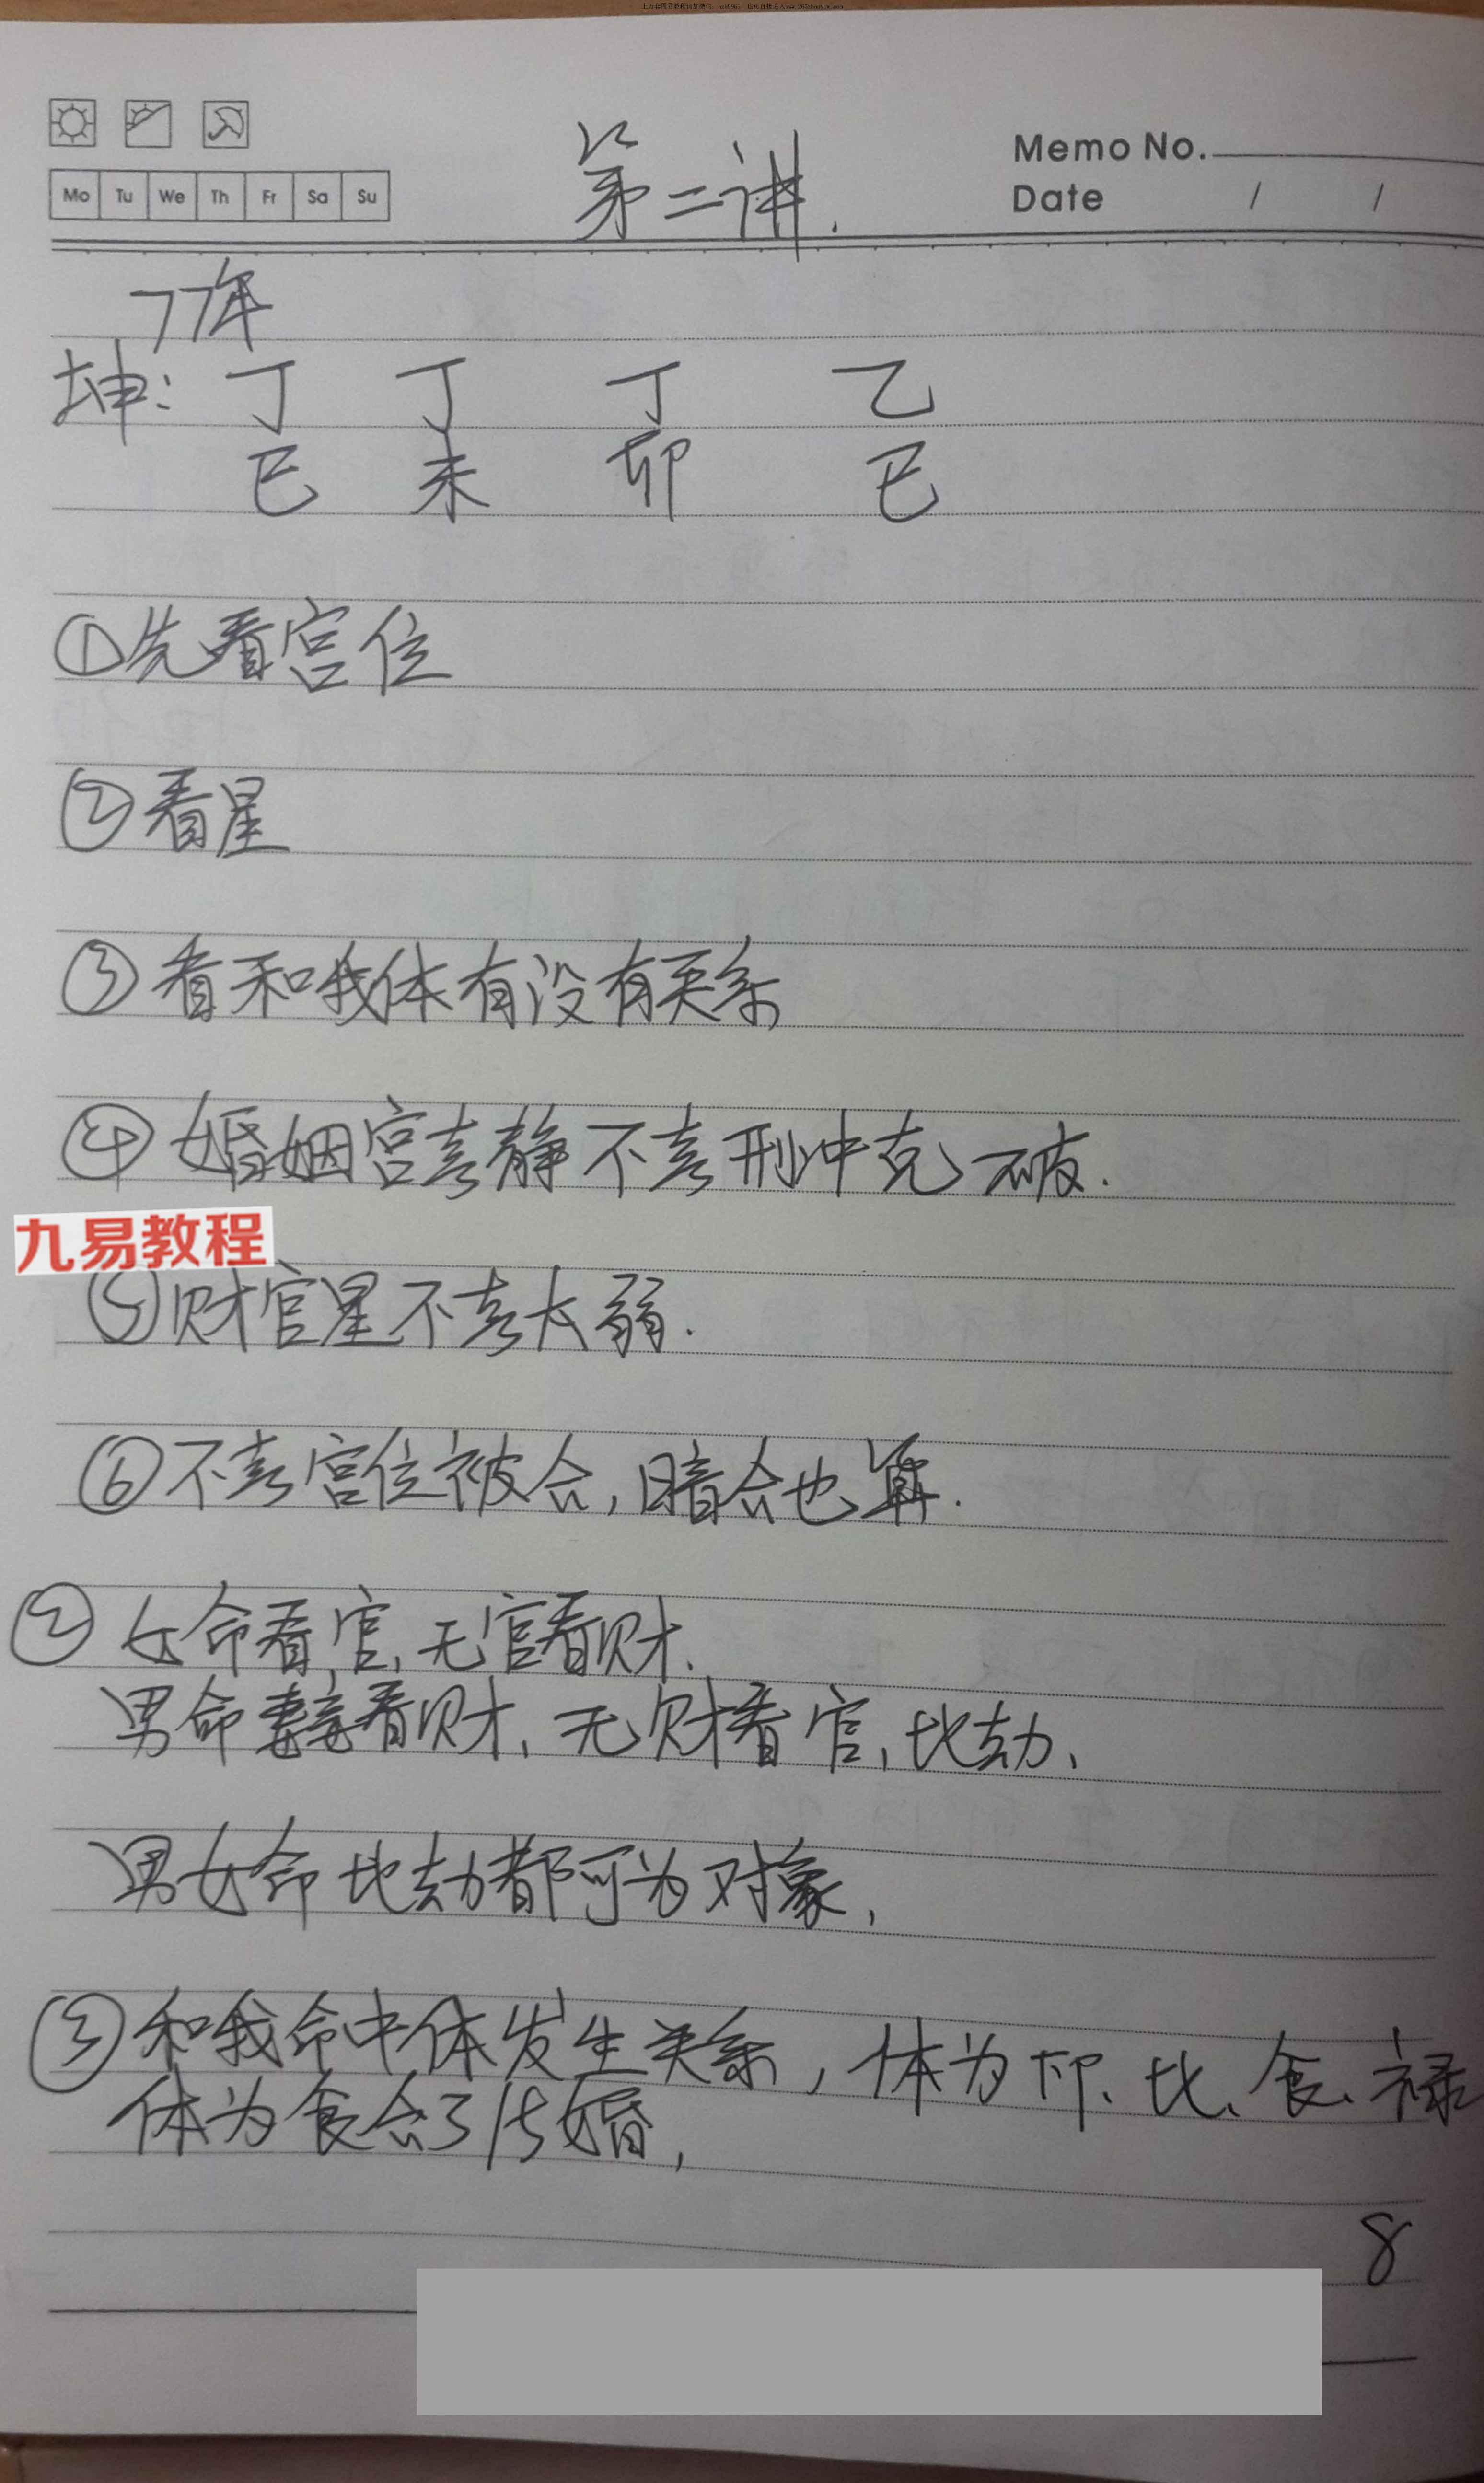 Mo Tu We Th Fr Sa Su
第二讲.
Memo No.
Date / /
77年
坤: 丁 丁 丁 乙
巳 未 卯 巳
①先看宫位
②看星
③看和我体有没有关系
④婚姻宫喜静不喜刑冲克破.
九易教程
⑤财官星不喜太弱.
⑥不喜宫位被合,暗合也算.
②女命看官,无官看财.
男命看财,无财看官,比劫,
男女命比劫都可为对象,
③和我命中体发生关系,体为印、比、食、禄
体为食合了结婚,
8